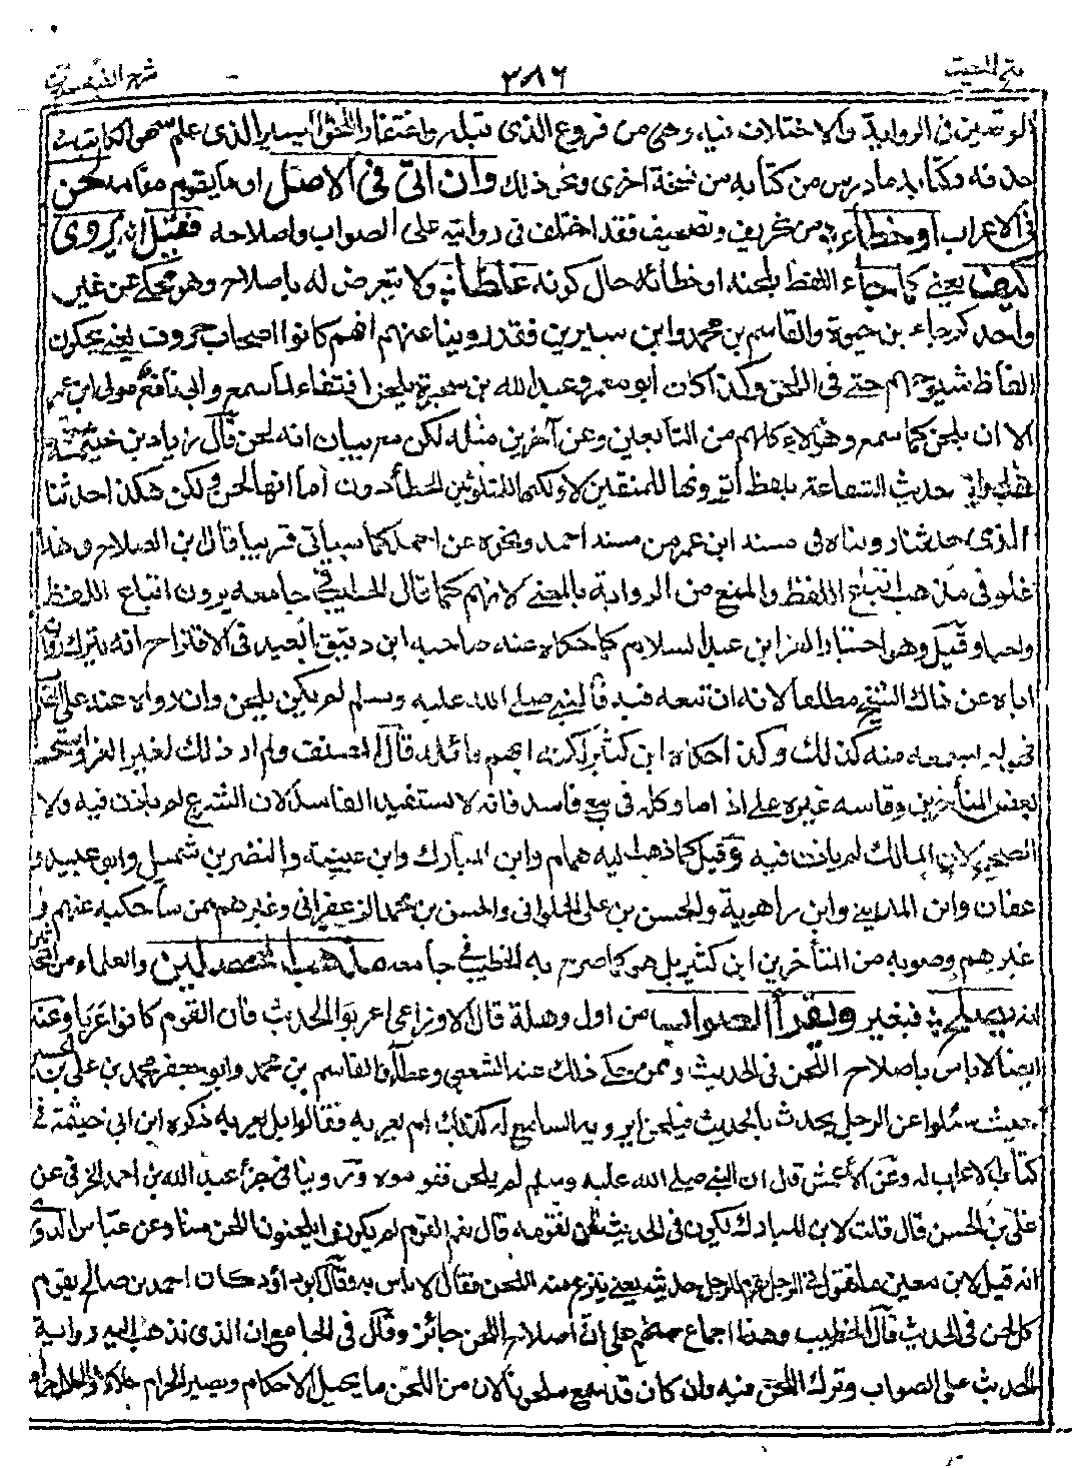 فتح المغيث ٣٨٦
الوصفين في الرواية والاختلاف فيها وهي من فروع الذى قبله واغتفار اللحق اليسير الذى علم سهو الكاتب
حذفه وكتابة ما درس من كتابه من نسخة اخرى ونحو ذلك وان اتى فى الاصل او ما يقوم مقامه لحن
فى الاعراب او خطأ من تحريف وتصحيف فقد اختلف فى روايته على الصواب واصلاحه فقيل انه يروى
كيف يعنى كما جاء اللفظ بلحنه او خطائه حال كونه غلطا ولا يتعرض له باصلاح وهو محكى عن غير
واحد كرجاء بن حيوة والقاسم بن محمد وابن سيرين فقد روينا عنهم انهم كانوا اصحاب حروف يعنى يحكون
الفاظ شيوخهم حتى فى اللحن وكذا كان ابو معمر وعبد الله بن سخبرة يلحن اقتفاء لما سمع وابى نافع مولى ابن عمر
الا ان يلحن كما سمع وهؤلاء كلهم من التابعين وعن آخرين مثله لكن مع بيان انه لحن قال زياد بن خيثمة
حديث الشفاعة بلفظ أترونها للمتقين لا ولكنها للمتلوثين الخطاؤون أما انها لحن ولكن هكذا حدثنا
الذى حدثنا رويناه فى مسند ابن عمر من مسند احمد ونحوه عن احمد كما سيأتى قريبا قال ابن الصلاح وهذا
غلو فى مذهب اتباع اللفظ والمنع من الرواية بالمعنى لانهم كما قال الخطيب فى جامعه يرون اتباع اللفظ
واجبا وقيل وهو اختيار العز ابن عبد السلام كما حكاه عنه صاحبه ابن دقيق العيد فى الاقتراح انه يترك روايته
اياه عن ذاك الشيخ مطلقا لانه ان تبعه فيه فالنبى صلى الله عليه وسلم لم يكن يلحن وان رواه عنه على الصواب
فهو لم يسمعه منه كذلك وكذا حكاه ابن كثير لكنه ابهم قائله قال المصنف ولم ار ذلك لغير العز واستحسنه
بعض المتأخرين وقاسه غيره على اذا ما وكله فى بيع فاسد فانه لا يستفيد الفاسد لان الشرع لم يأذن فيه ولا
الصحيح لان المالك لم يأذن فيه وقيل كما ذهب اليه همام وابن المبارك وابن عيينة والنضر بن شميل وابو عبيد و
عفان وابن المدينى وابن راهوية والحسن بن على الحلوانى والحسن بن محمد الزعفرانى وغيرهم ممن سأحكيه عنهم و
غيرهم وصوبه من المتأخرين ابن كثير بل هو كما صرح به الخطيب فى جامعه مذهب المحصلين والعلماء من المحدثين
انه يصلح فيغير ويقرأ الصواب من اول وهلة قال الاوزاعى اعربوا الحديث فان القوم كانوا عربا وعنه
ايضا لا بأس باصلاح اللحن فى الحديث وممن حكى ذلك عنه الشعبى وعطاء والقاسم بن محمد وابو جعفر محمد بن على بن الحسين
حيث سئلوا عن الرجل يحدث بالحديث فيلحن ايرويه السامع له كذلك ام يعربه فقالوا بل يعربه ذكره ابن ابى خيثمة فى
كتاب الاعراب له وعن الأعمش قال ان النبى صلى الله عليه وسلم لم يلحن فقوموه وروينا فى جزء عبد الله بن احمد الخرقى عن
على بن الحسن قال قلت لابن المبارك يكون فى الحديث لحن نقومه قال نعم القوم لم يكونوا يلحنون اللحن منا وعن عباس الدورى
انه قيل لابن معين ما تقول فى الرجل يقوم للرجل حديثه يعنى ينزع منه اللحن فقال لا بأس به وقال ابو داؤد كان احمد بن صالح يقوم
كل لحن فى الحديث قال الخطيب وهذا اجماع منهم على ان اصلاح اللحن جائز وقال فى الجامع ان الذى نذهب اليه رواية
الحديث على الصواب وترك اللحن فيه وان كان قد سمع ملحونا لان من اللحن ما يحيل الاحكام ويصير الحرام حلالا والحلال حراما